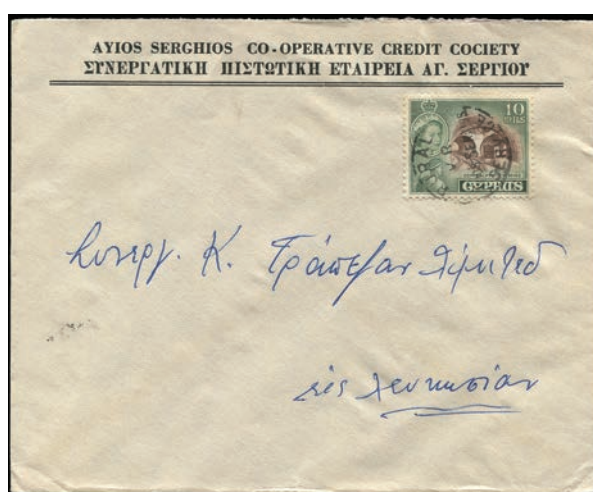 AYIOS SERGHIOS CO-OPERATIVE CREDIT COCIETY
ΣΥΝΕΡΓΑΤΙΚΗ ΠΙΣΤΩΤΙΚΗ ΕΤΑΙΡΕΙΑ ΑΓ. ΣΕΡΓΙΟΥ
10
MILS
CYPRUS
Συνεργ. Κ. Τράπεζαν Λίμιτεδ
εις Λευκωσίαν